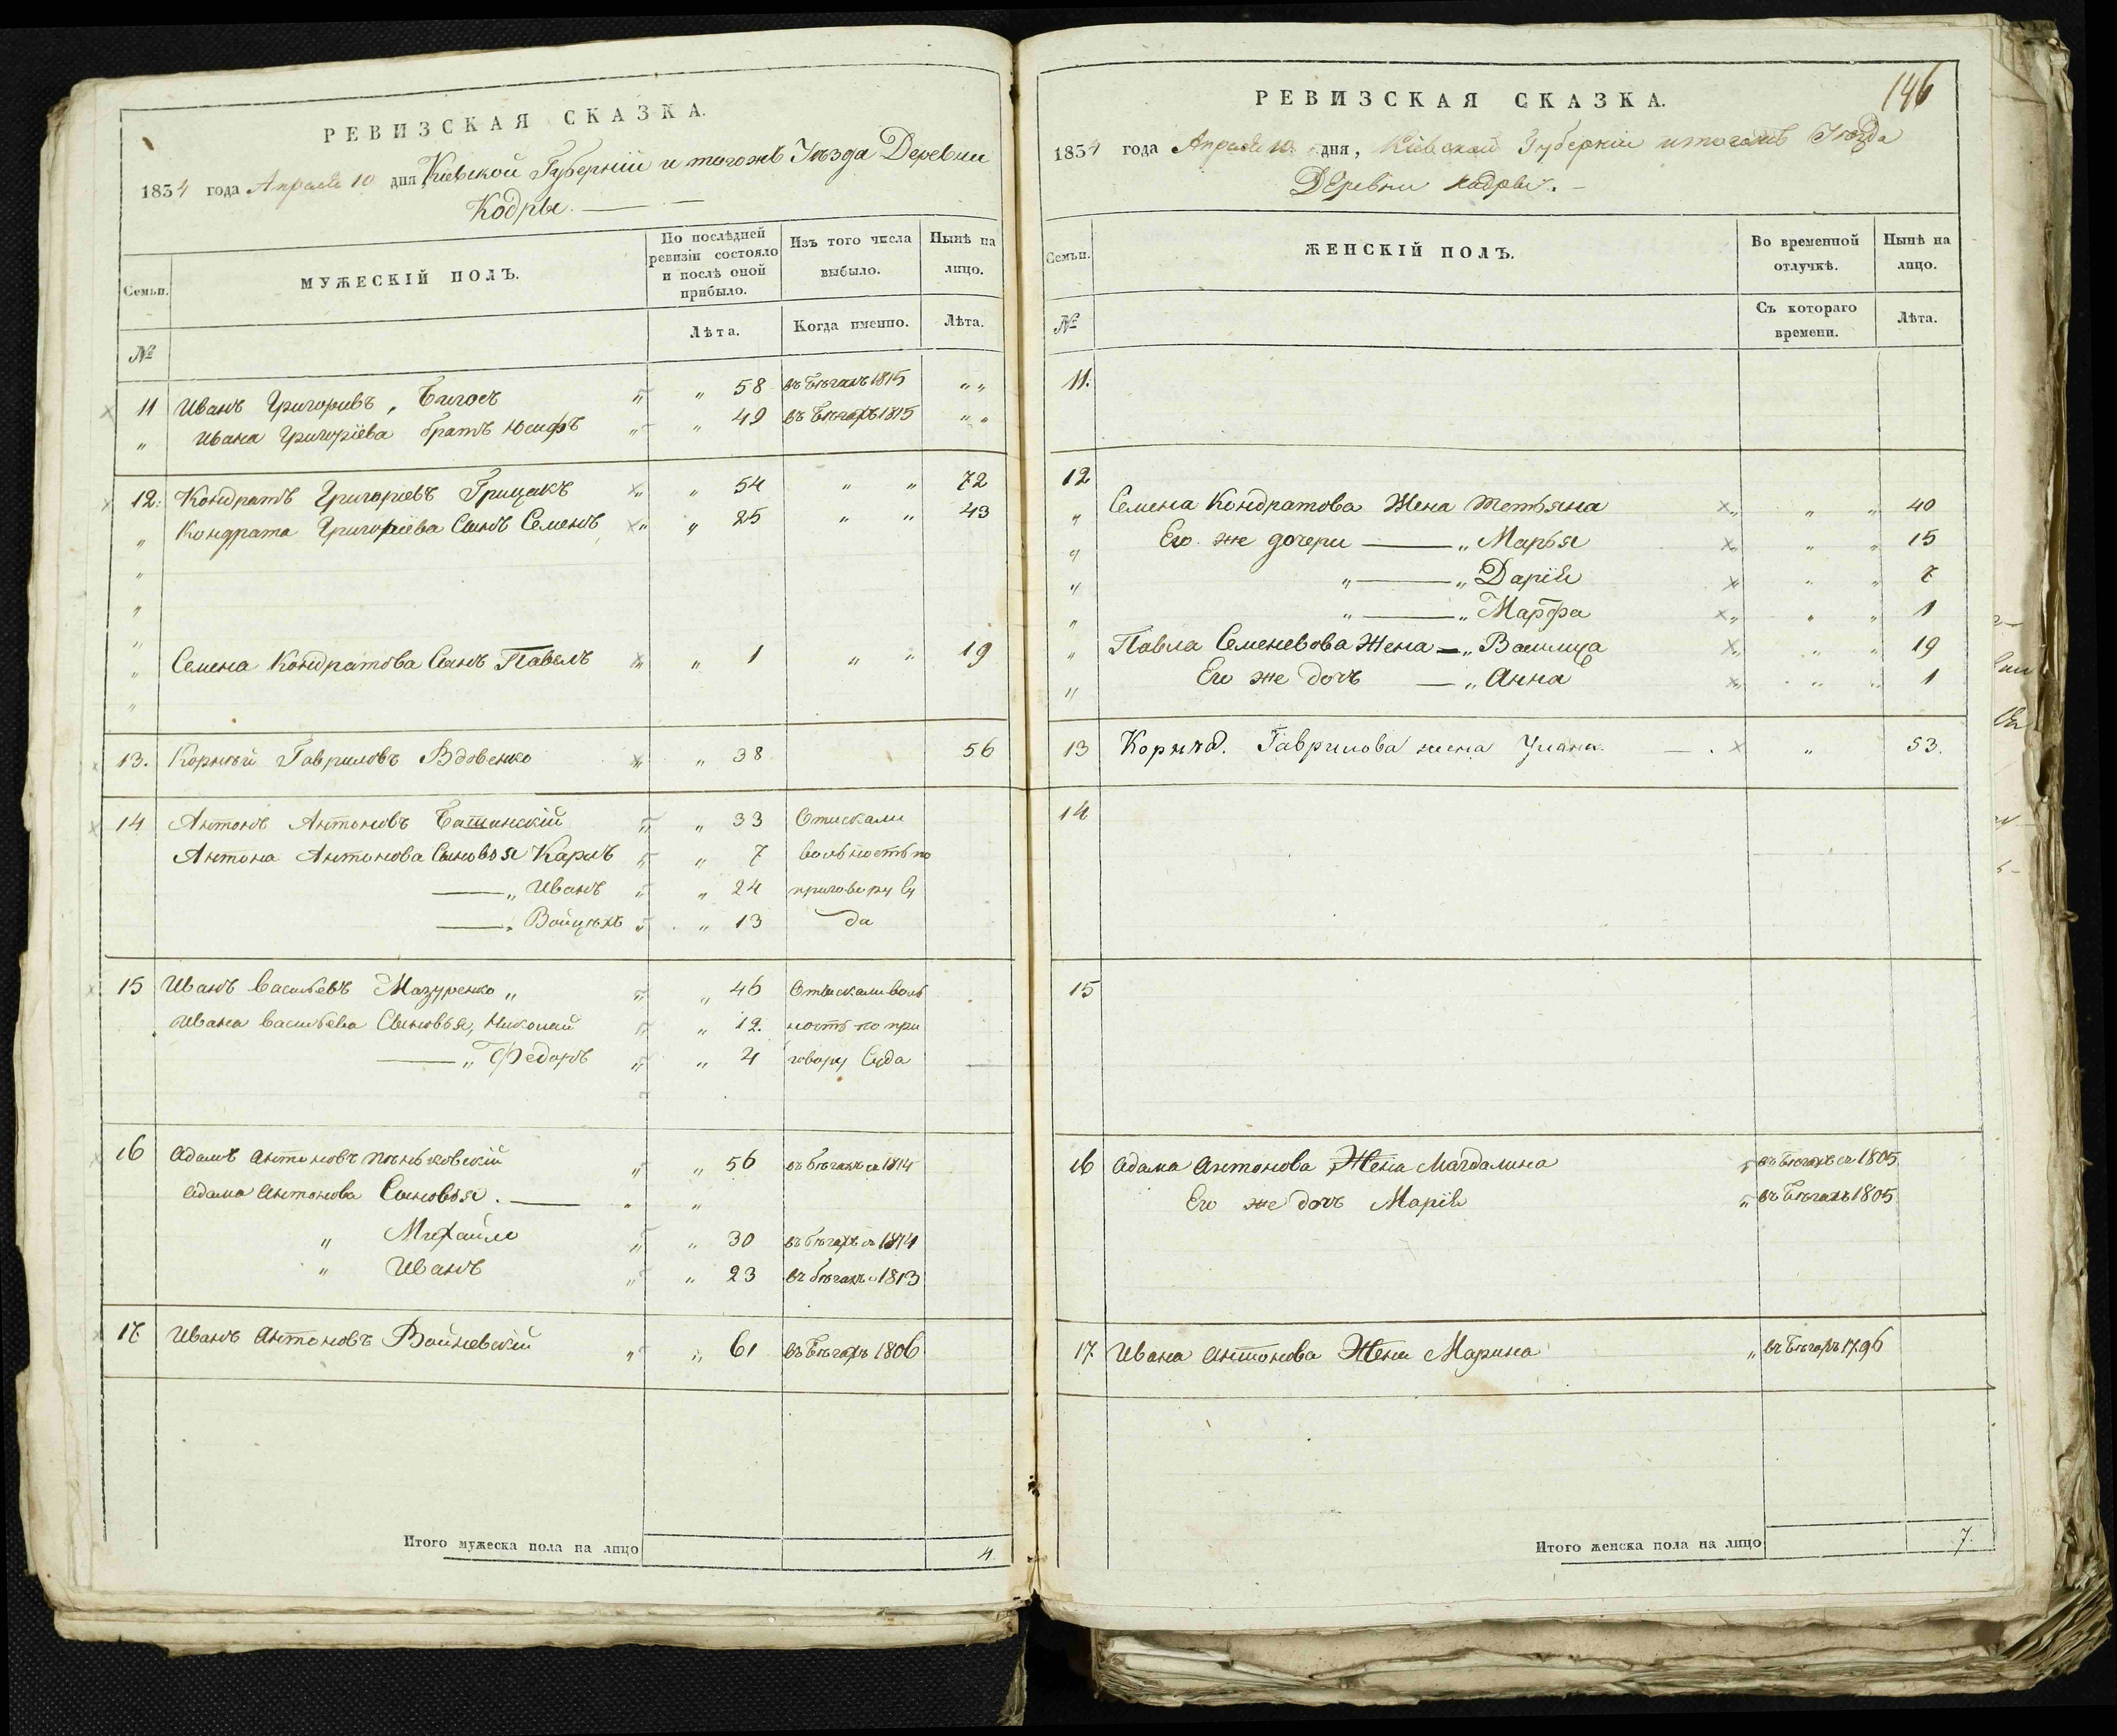 РЕВИЗСКАЯ СКАЗКА.
1834 года Апреля 10 дня, Кіевской Губерніи и тогожъ Уѣзда Деревни
Кодры.
Семьи.
МУЖЕСКІЙ ПОЛЪ.
По послѣдней ревизіи состояло и послѣ оной прибыло.
Изъ того числа выбыло.
Нынѣ на лицо.
№
Лѣта.
Когда именно.
Лѣта.
11 Иванъ Григорьевъ, „ 58 въ бѣгахъ 1815 „ „
„ Ивана Григоріева братъ Юсифъ „ 49 въ бѣгахъ 1815 „ „
12. Кондратъ Григоріевъ Грицакъ „ 54 „ „ 72
„ Кондрата Григоріева Сынъ Семенъ „ 25 „ „ 43
„ Семена Кондратова Сынъ Павелъ „ 1 „ „ 19
13. Корнѣй Гавриловъ Вдовенко „ 38 56
14 Антонъ Антоновъ Башинскій „ 33 Отискали
Антона Антонова Сыновья Карлъ „ 7 вольность по
„ Иванъ „ 24 приговору Су
„ Войцѣхъ „ 13 да
15 Иванъ Васильевъ Мазуренко „ „ 46 Отыскали воль
Ивана Васильева Сыновья, Николай „ 12. ность по при
„ Федоръ „ 4 говору Суда
16 Адамъ Антоновъ Пѣньковскій „ 56 въ бѣгахъ съ 1814
Адама Антонова Сыновья. „
„ Михайло „ 30 въ бѣгахъ съ 1814
„ Иванъ „ 23 въ бѣгахъ с 1813
17 Иванъ Антоновъ Войневскій „ 61 въ бѣгахъ 1806
Итого мужеска пола на лицо 4.
146
РЕВИЗСКАЯ СКАЗКА.
1834 года Апреля 10 дня, Кіевской Губерніи итогожъ Уѣзда
Деревни Кодры.
Семьи.
ЖЕНСКІЙ ПОЛЪ.
Во временной отлучкѣ.
Нынѣ на лицо.
№
Съ котораго времени.
Лѣта.
11.
12
„ Семена Кондратова Жена Тетьяна „ „ 40
„ Его же дочери „ Марья „ „ 15
„ „ „ Дарія „ „ 7
„ „ „ Марфа „ „ 1
„ Павла Семеневова Жена „ Василица „ „ 19
„ Его же дочь „ Анна „ „ 1
13 Корнѣя. Гаврилова жена Уліана „ 53.
14
15
16 Адама Антонова Жена Магдалина „ въ бѣгахъ съ 1805
Его же дочь Марія „ въ бѣгахъ 1805
17. Ивана Антонова Жена Марина „ въ бѣгахъ 1796
Итого женска пола на лицо 7.